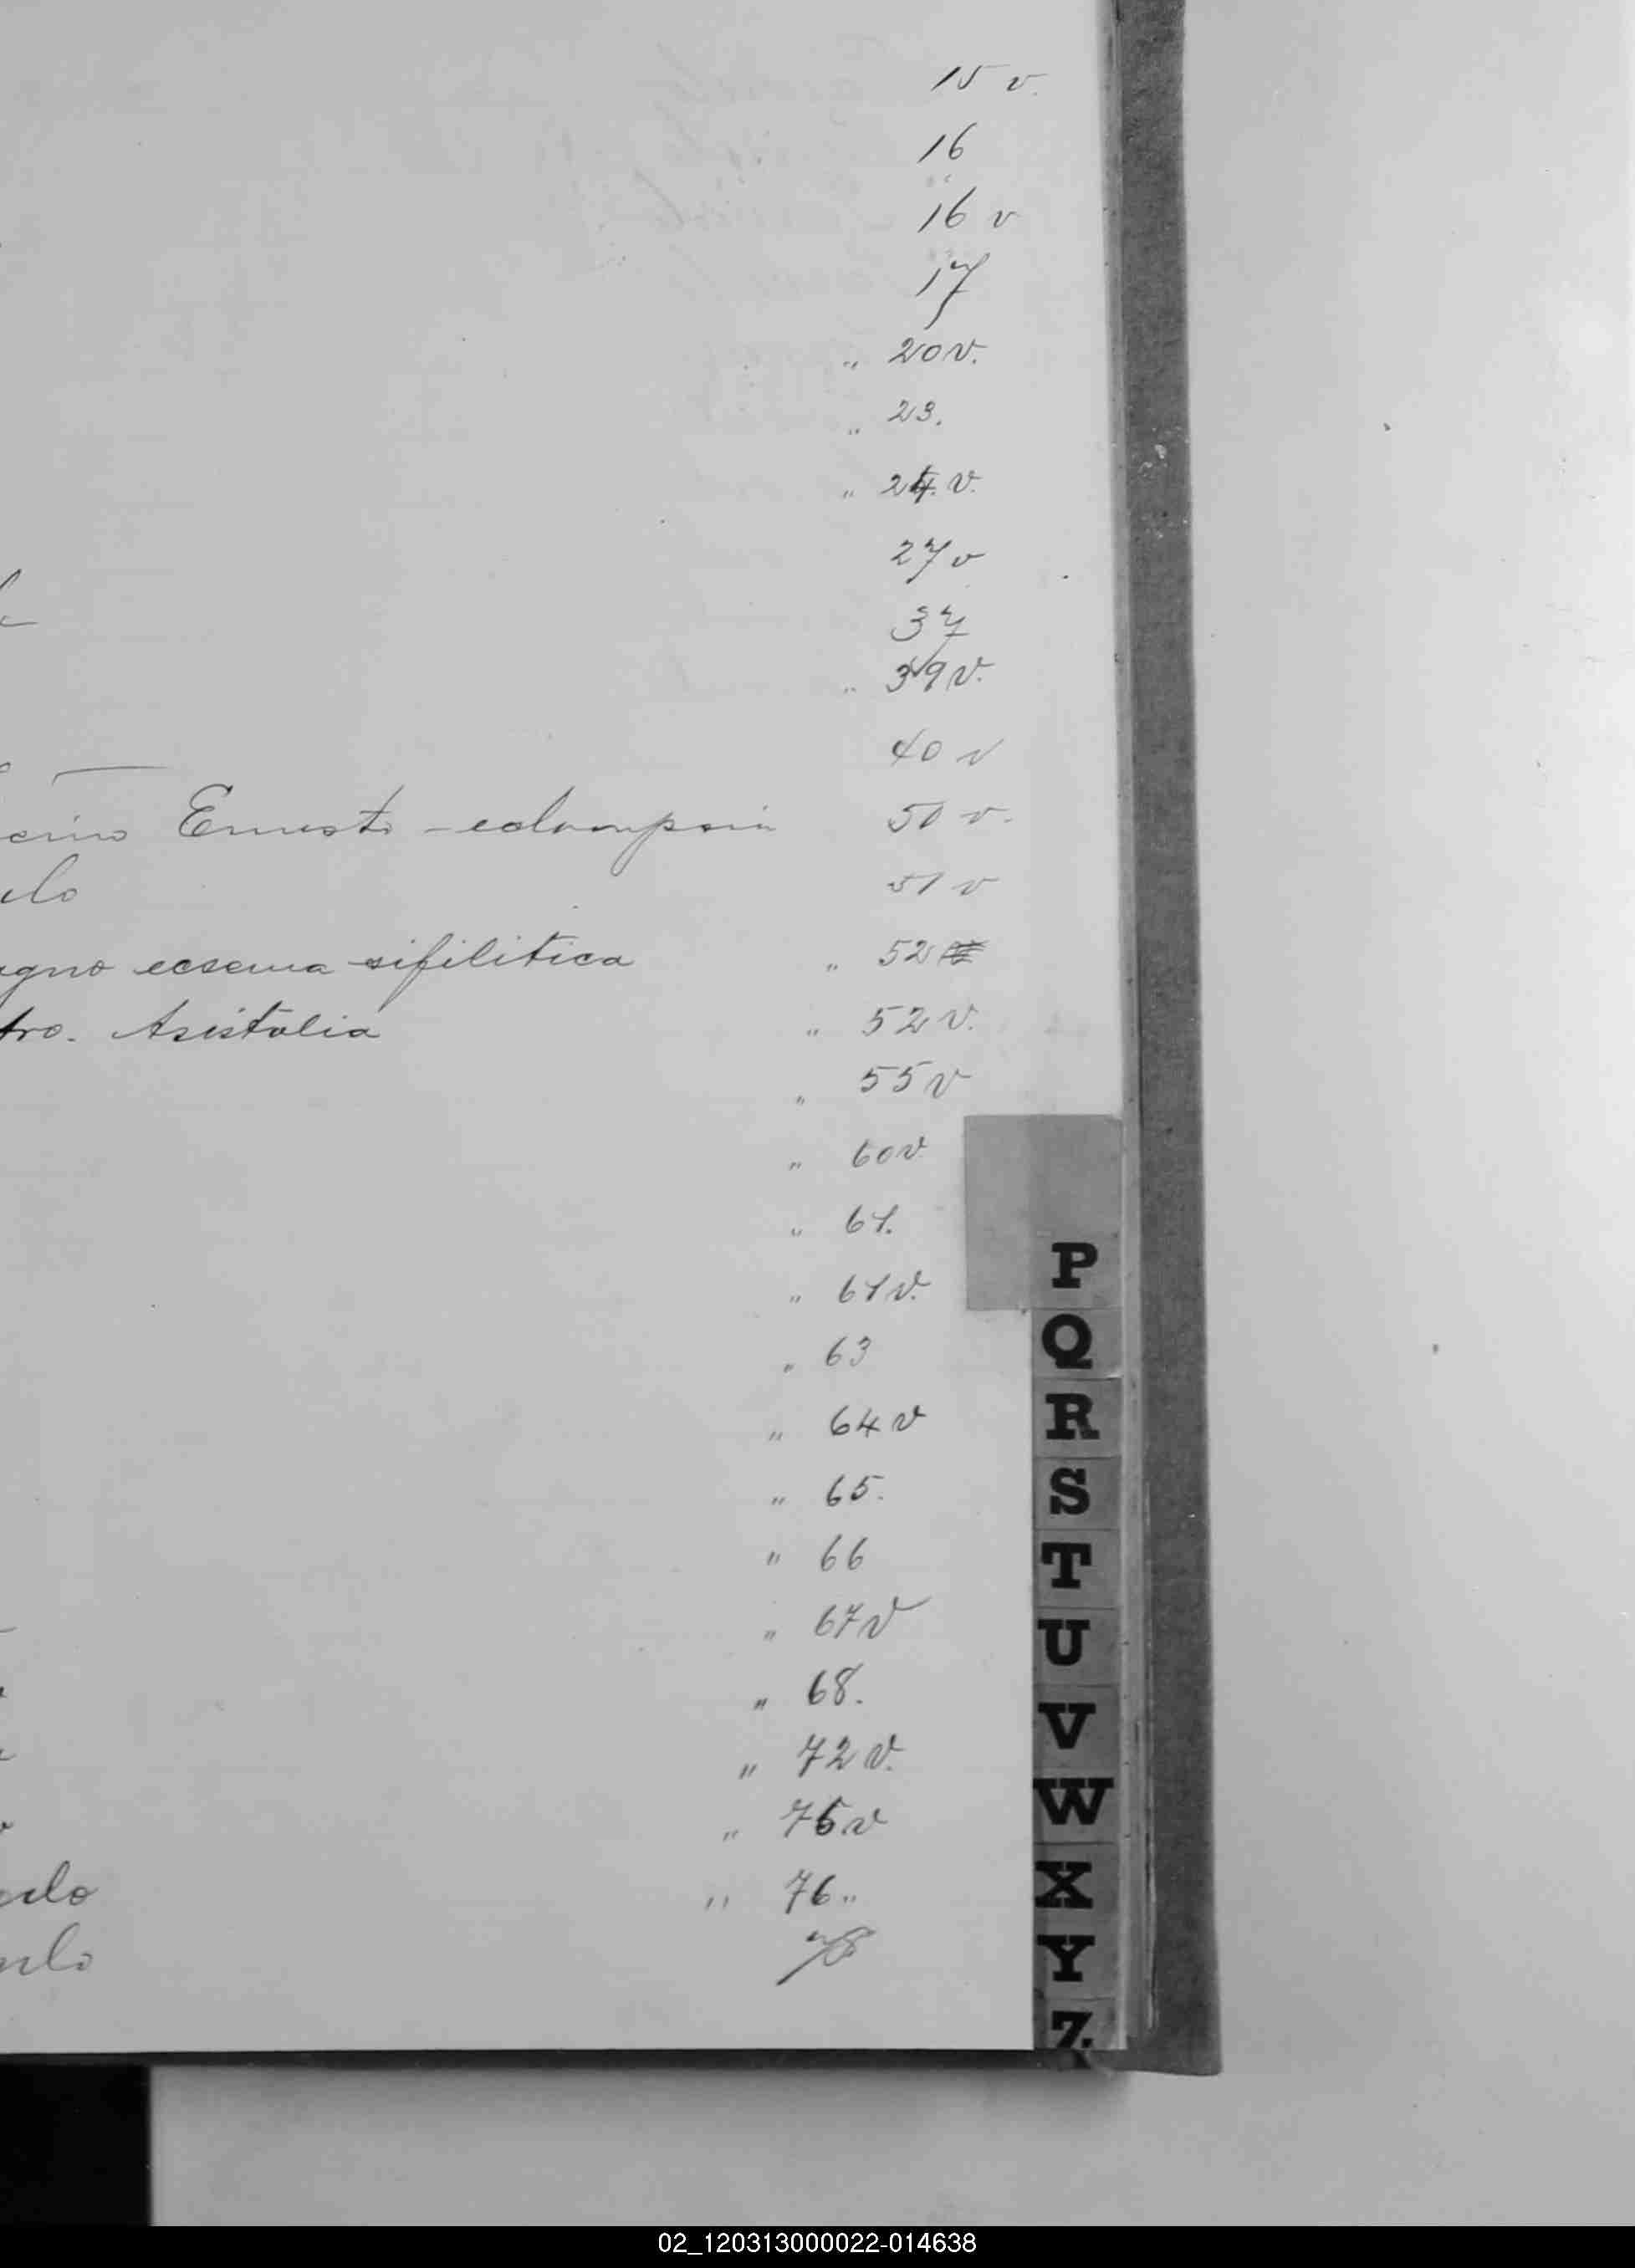 15 v.
16
16 v
17
" 20 v.
" 23.
" 24. v.
27 v
37
" 39 v.
40 v
Ernesto - eclampsia 50 v.
51 v
eczema sifilitica " 52
tro. Asistolia " 52 v.
" 55 v
" 60 v
" 61.
" 61 v.
" 63
" 64 v
" 65.
" 66
" 67 v
" 68.
" 72 v.
" 75 v
" 76 "
78
P
Q
R
S
T
U
V
W
X
Y
Z
02_120313000022-014638